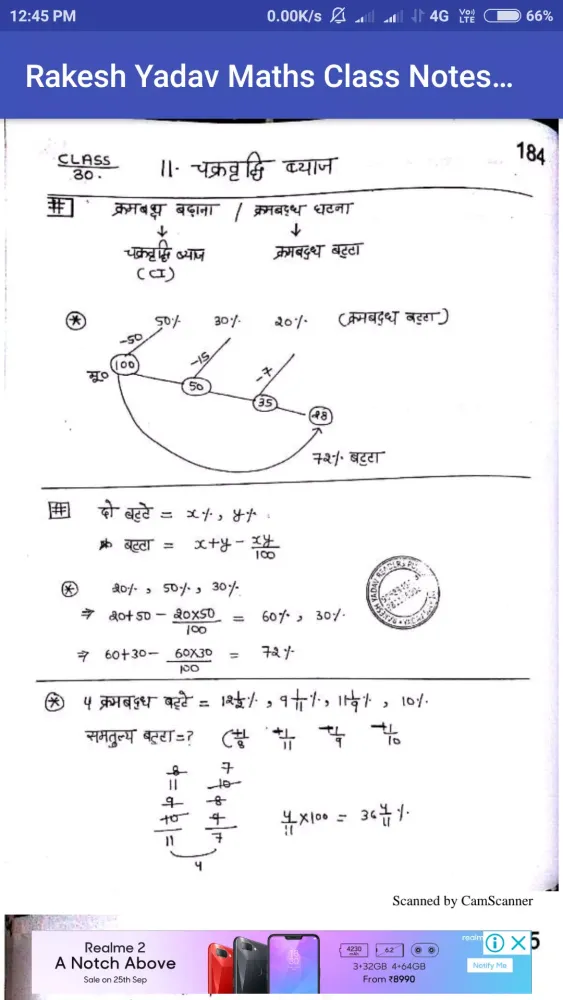 12:45 PM 0.00K/s 4G VoLTE 66%
Rakesh Yadav Maths Class Notes...
184
CLASS 30. 11. चक्रवृद्धि ब्याज
# क्रमबद्ध बढ़ाना / क्रमबद्ध घटना
↓ ↓
चक्रवृद्धि ब्याज क्रमबद्ध बट्टा
(CI)
* 50% 30% 20% (क्रमबद्ध बट्टा)
-50 -15 -7
मू० 100 50 35 28
72% बट्टा
# दो बट्टे = x%, y%
* बट्टा = x+y - xy/100
* 20%, 50%, 30%
⇒ 20+50 - 20×50/100 = 60%, 30%
⇒ 60+30 - 60×30/100 = 72%
* 4 क्रमबद्ध बट्टे = 12 1/2%, 9 1/11%, 11 1/9%, 10%
समतुल्य बट्टा = ? (+1/8 +1/11 +1/9 +1/10
8 7
11 10
9 8
10 9 4/11 × 100 = 36 4/11 %
11 7
4
Scanned by CamScanner
5
Realme 2
A Notch Above
Sale on 25th Sep
4230 mAh 6.2
3+32GB 4+64GB
From ₹8990
realm
Notify Me